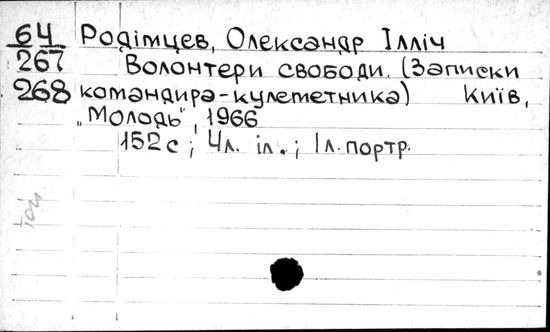 64 Родімцев, Олександр Ілліч
267 Волонтери свободи. (Записки
268 командира-кулеметника) Київ,
„Молодь", 1966
152 с ; 4л. іл. ; 1л. портр.